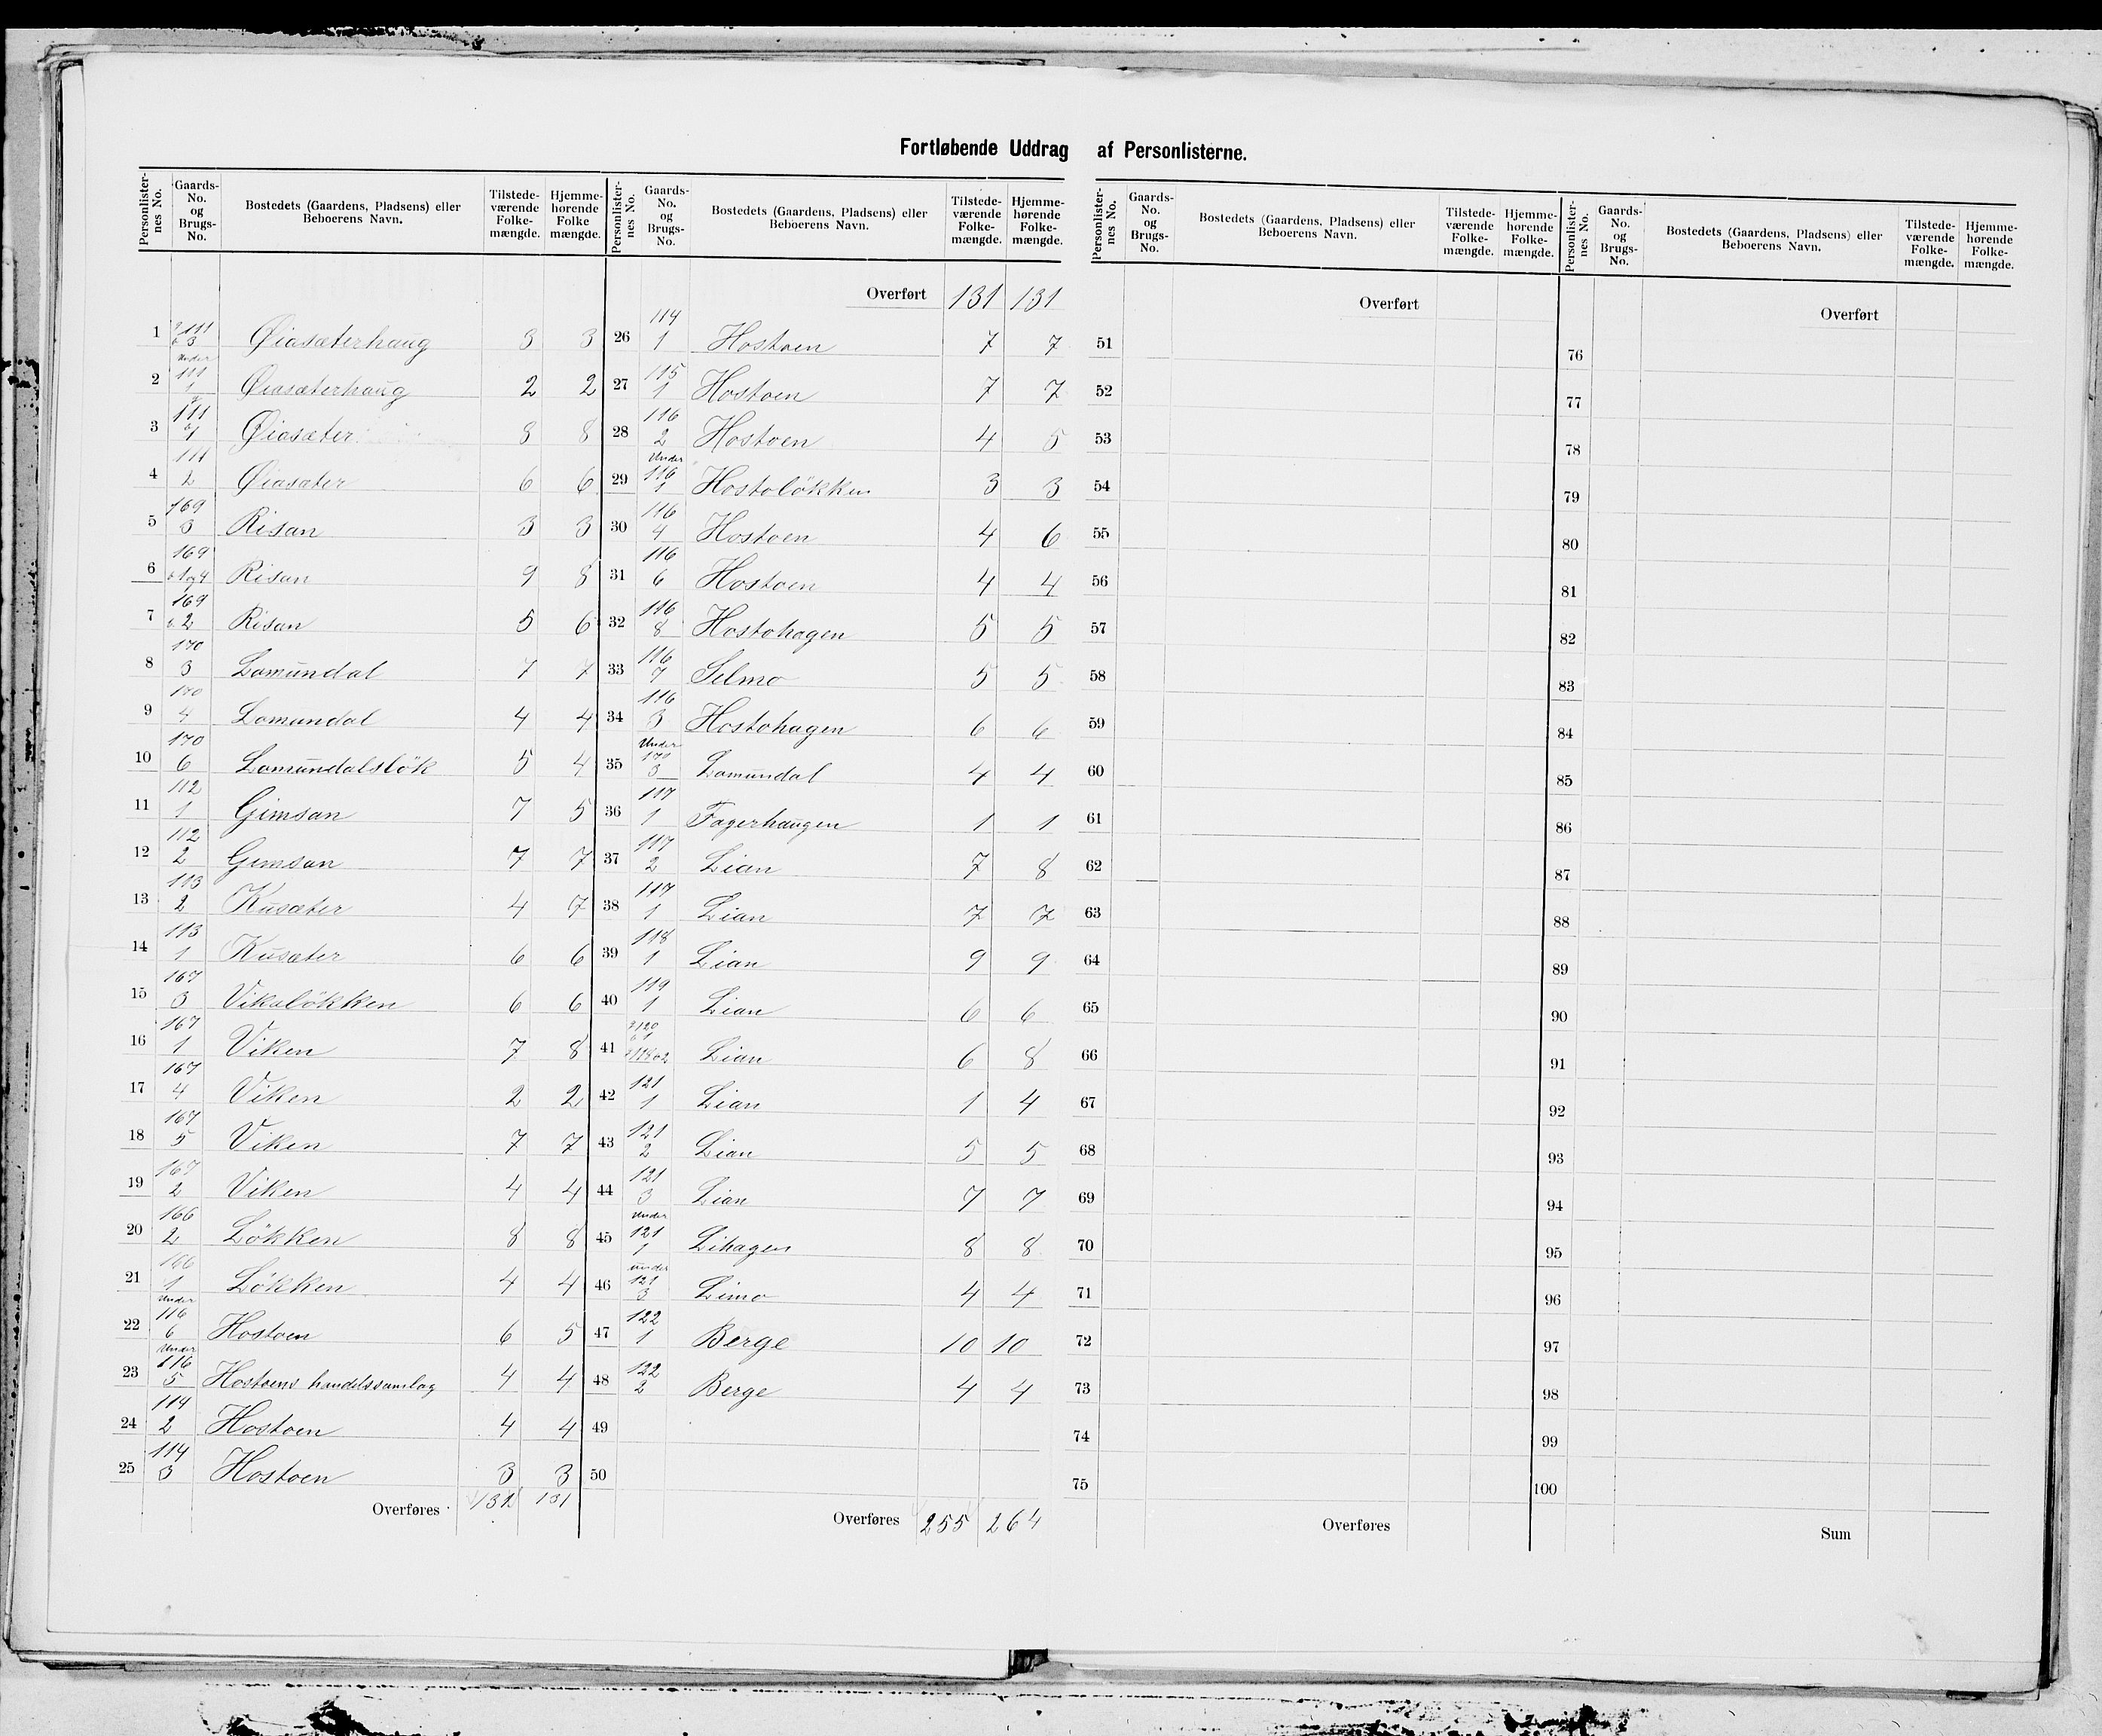 Fortløbende Uddrag af Personlisterne.
Personlisternes No. | Gaards-No. og Brugs-No. | Bostedets (Gaardens, Pladsens) eller Beboerens Navn. | Tilstedeværende Folkemængde. | Hjemmehørende Folkemængde.
1 | 111 3 | Øiasæterhaug | 3 | 3
2 | Under 111 1 | Øiasæterhaug | 2 | 2
3 | 111 1 | Øiasæter | 8 | 8
4 | 111 2 | Øiasæter | 6 | 6
5 | 169 3 | Risan | 3 | 3
6 | 169 1 og 4 | Risan | 9 | 8
7 | 169 2 | Risan | 5 | 6
8 | 170 3 | Lomundal | 7 | 7
9 | 170 4 | Lomundal | 4 | 4
10 | 170 6 | Lomundalsløk | 5 | 4
11 | 112 1 | Gimsan | 7 | 5
12 | 112 2 | Gimsan | 7 | 7
13 | 113 2 | Kusæter | 4 | 7
14 | 113 1 | Kusæter | 6 | 6
15 | 167 3 | Vikaløkken | 6 | 6
16 | 167 1 | Viken | 7 | 8
17 | 167 4 | Viken | 2 | 2
18 | 167 5 | Viken | 7 | 7
19 | 167 2 | Viken | 4 | 4
20 | 166 2 | Løkken | 8 | 8
21 | 166 1 | Løkken | 4 | 4
22 | Under 116 6 | Hostoen | 6 | 5
23 | Under 116 5 | Hostoens handelssamlag | 4 | 4
24 | 114 2 | Hostoen | 4 | 4
25 | 114 3 | Hostoen | 3 | 3
Overføres | 131 | 131
Personlisternes No. | Gaards-No. og Brugs-No. | Bostedets (Gaardens, Pladsens) eller Beboerens Navn. | Tilstedeværende Folkemængde. | Hjemmehørende Folkemængde.
Overført | 131 | 131
26 | 114 1 | Hostoen | 7 | 7
27 | 115 1 | Hostoen | 7 | 7
28 | 116 2 | Hostoen | 4 | 5
29 | Under 116 1 | Hostoløkken | 3 | 3
30 | 116 4 | Hostoen | 4 | 6
31 | 116 6 | Hostoen | 4 | 4
32 | 116 8 | Hostohagen | 5 | 5
33 | 116 7 | Selmo | 5 | 5
34 | 116 3 | Hostohagen | 6 | 6
35 | Under 170 3 | Lomundal | 4 | 4
36 | 117 1 | Fagerhaugen | 1 | 1
37 | 117 2 | Lian | 7 | 8
38 | 117 1 | Lian | 7 | 7
39 | 118 1 | Lian | 9 | 9
40 | 119 1 | Lian | 6 | 6
41 | 120 1 | Lian | 6 | 8
42 | 121 1 | Lian | 1 | 4
43 | 121 2 | Lian | 5 | 5
44 | 121 3 | Lian | 7 | 7
45 | Under 121 1 | Lihagen | 8 | 8
46 | under 121 3 | Limo | 4 | 4
47 | 122 1 | Berge | 10 | 10
48 | 122 2 | Berge | 4 | 4
49
50
Overføres | 255 | 264
Personlisternes No. | Gaards-No. og Brugs-No. | Bostedets (Gaardens, Pladsens) eller Beboerens Navn. | Tilstedeværende Folkemængde. | Hjemmehørende Folkemængde.
Overført
51
52
53
54
55
56
57
58
59
60
61
62
63
64
65
66
67
68
69
70
71
72
73
74
75
Overføres
Personlisternes No. | Gaards-No. og Brugs-No. | Bostedets (Gaardens, Pladsens) eller Beboerens Navn. | Tilstedeværende Folkemængde. | Hjemmehørende Folkemængde.
Overført
76
77
78
79
80
81
82
83
84
85
86
87
88
89
90
91
92
93
94
95
96
97
98
99
100
Sum